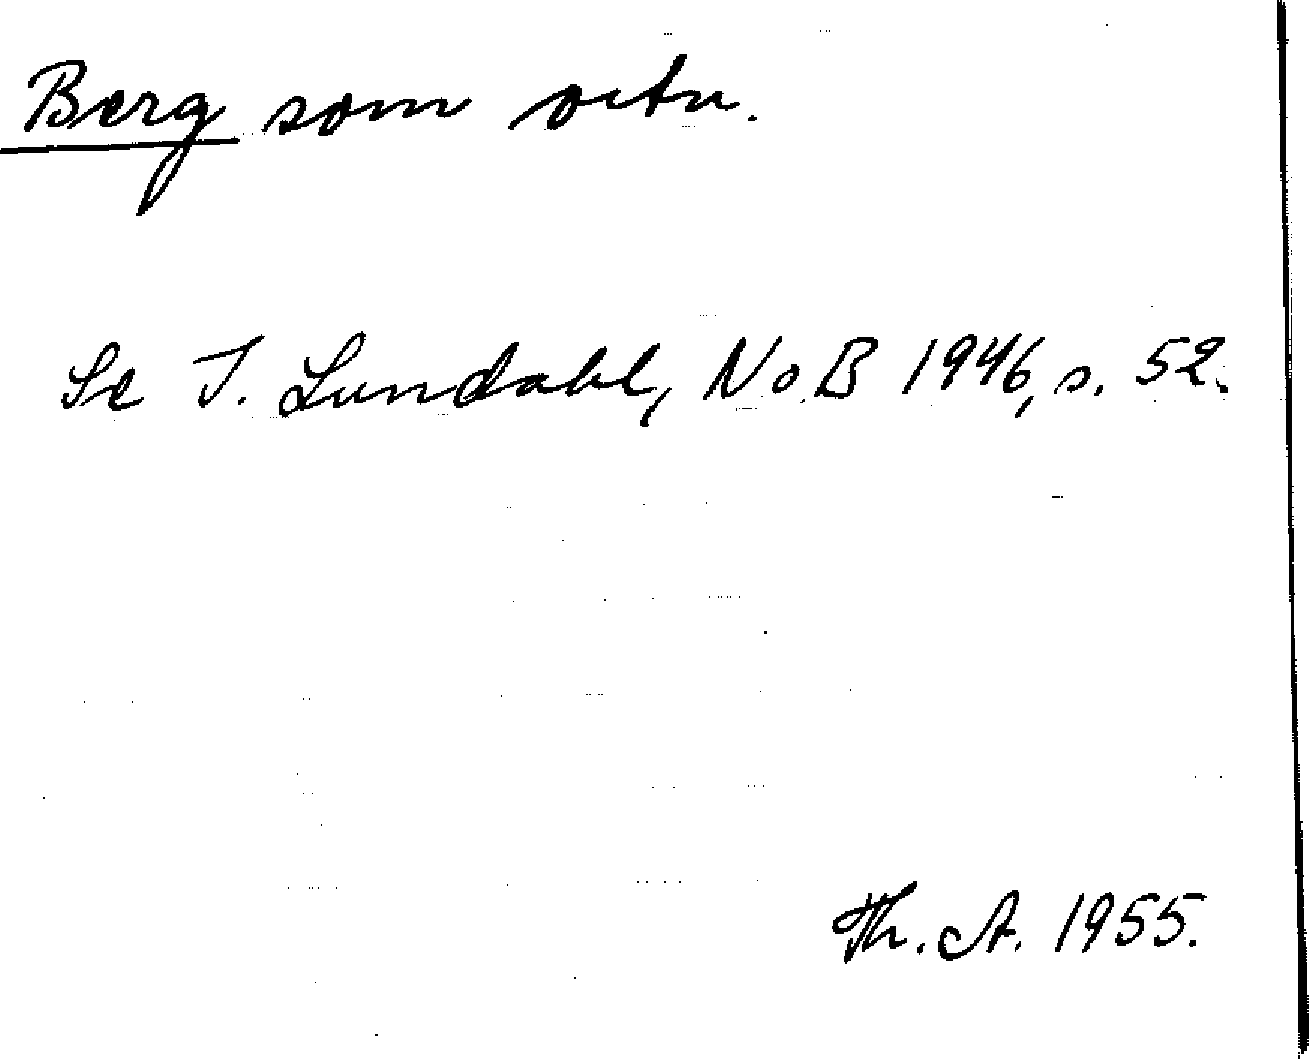 Berg som ortn.
Se I. Lundahl, NoB 1946, s. 52.
Th. A. 1955.